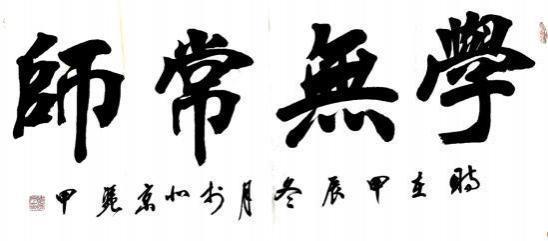 學無常師
時在甲辰冬月於北京苑甲